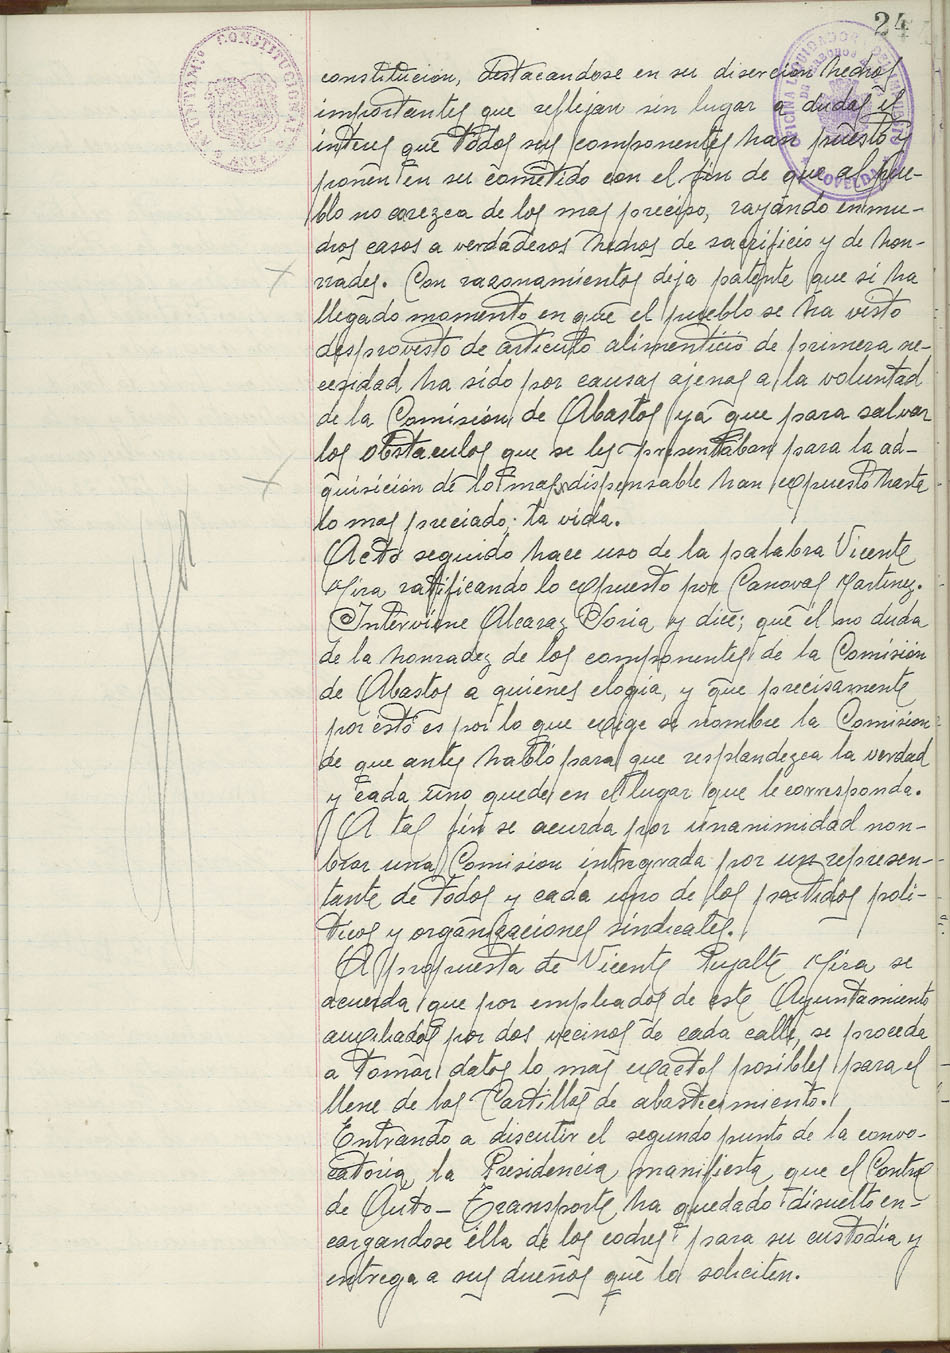 24
AYUNTAMTº CONSTITUCIONAL
ASPE
OFICINA LIQUIDADORA DEL IMPUESTO
DE DERECHOS
NOVELDA
constitución, destacandose en su diserción hechos
importantes que reflejan sin lugar a dudas el
interes que todos sus componentes han puesto y
ponen en su cometido con el fin de que al pue-
blo no carezca de los mas preciso, rayando en mu-
chos casos a verdaderos hechos de sacrificio y de hon-
rradez. Con razonamientos deja patente que si ha
llegado momento en que el pueblo se ha visto
desprovisto de articulo alimenticio de primera ne-
cesidad ha sido por causas ajenas a la voluntad
de la Comisión de Abastos ya que para salvar
los obstaculos que se les presentaban para la ad-
quisición de lo mas dispensable han expuesto haste
lo mas preciado; la vida.
Acto seguido hace uso de la palabra Vicente
Mira ratificando lo expuesto por Canovas Martinez.
Interviene Alcaraz Soria y dice; que él no duda
de la honradez de los componentes de la Comisión
de Abastos a quienes elogia, y que precisamente
por esto es por lo que exige se nombre la Comision
de que antes habló para que resplandezca la verdad
y cada uno quede en el lugar que le corresponda.
A tal fin se acuerda por unanimidad non-
brar una Comision integrada por un represen-
tante de todos y cada uno de los partidos poli-
ticos y organizaciones sindicales.
A propuesta de Vicente Pujalte Mira se
acuerda que por empleados de este Ayuntamiento
auxiliados por dos vecinos de cada calle, se proceda
a tomar datos lo mas exactos posibles para el
llene de las Cartillas de abastecimiento.
Entrando a discutir el segundo punto de la convo-
catoria la Presidencia manifiesta que el Control
de Auto-Transporte ha quedado disuelto en-
cargandose ella de los coches para su custodia y
entrega a sus dueños que la soliciten.